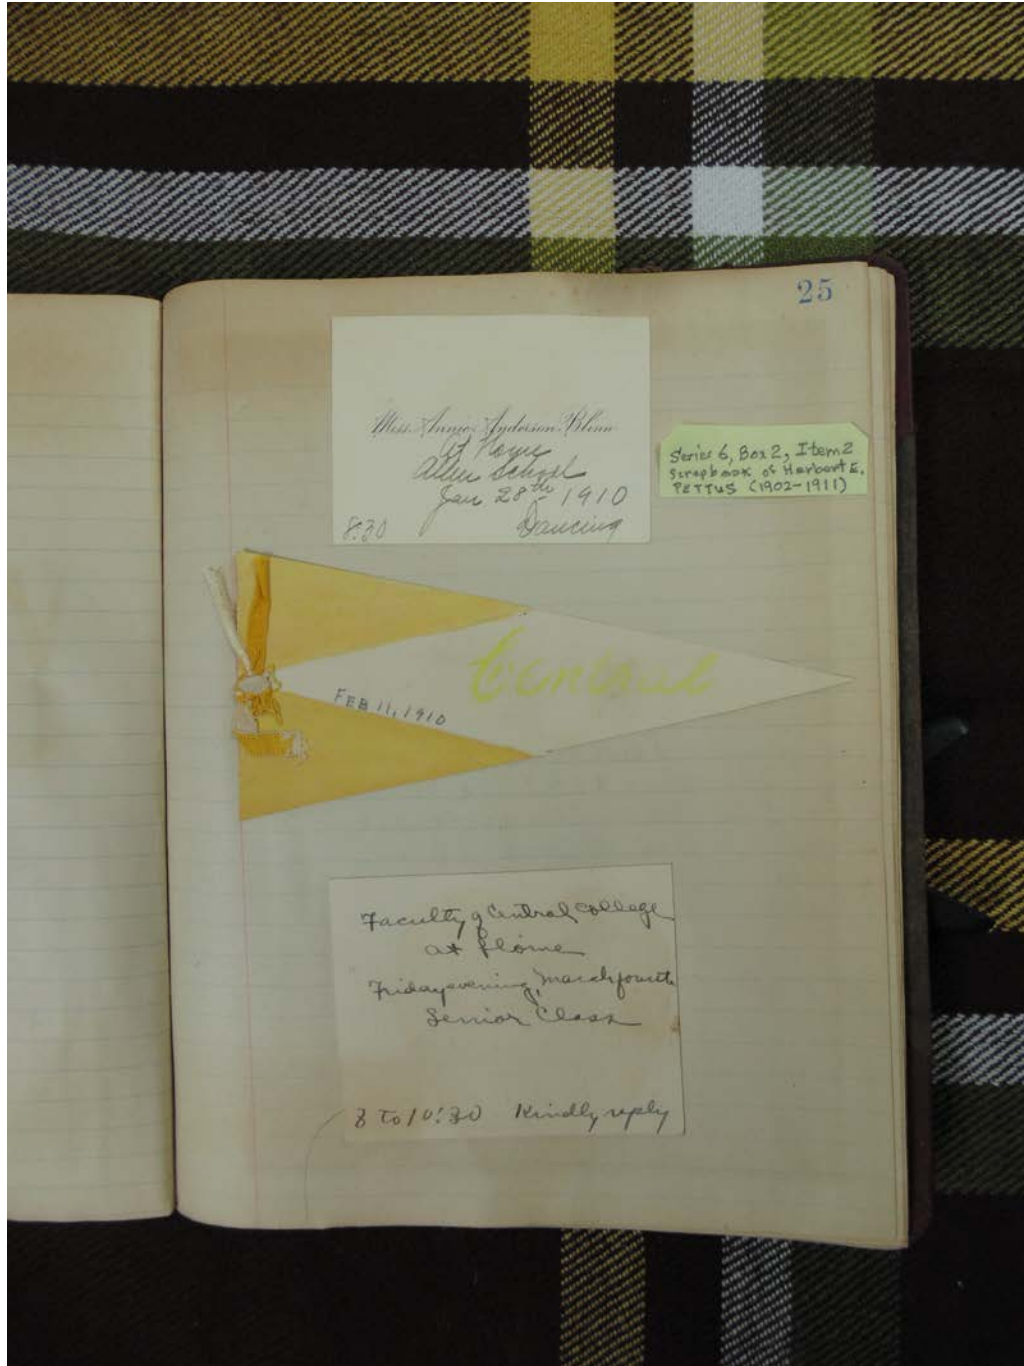 25
Miss Annie Anderson Blinn
At Home
Allen School
Jan 28th 1910
8:30 Dancing
Series 6, Box 2, Item 2
Scrapbook of Herbert E.
PETTUS (1902-1911)
Central
FEB 11, 1910
Faculty of Central College
at Home
Friday evening, March fourth
Senior Class
8 to 10:30 Kindly reply